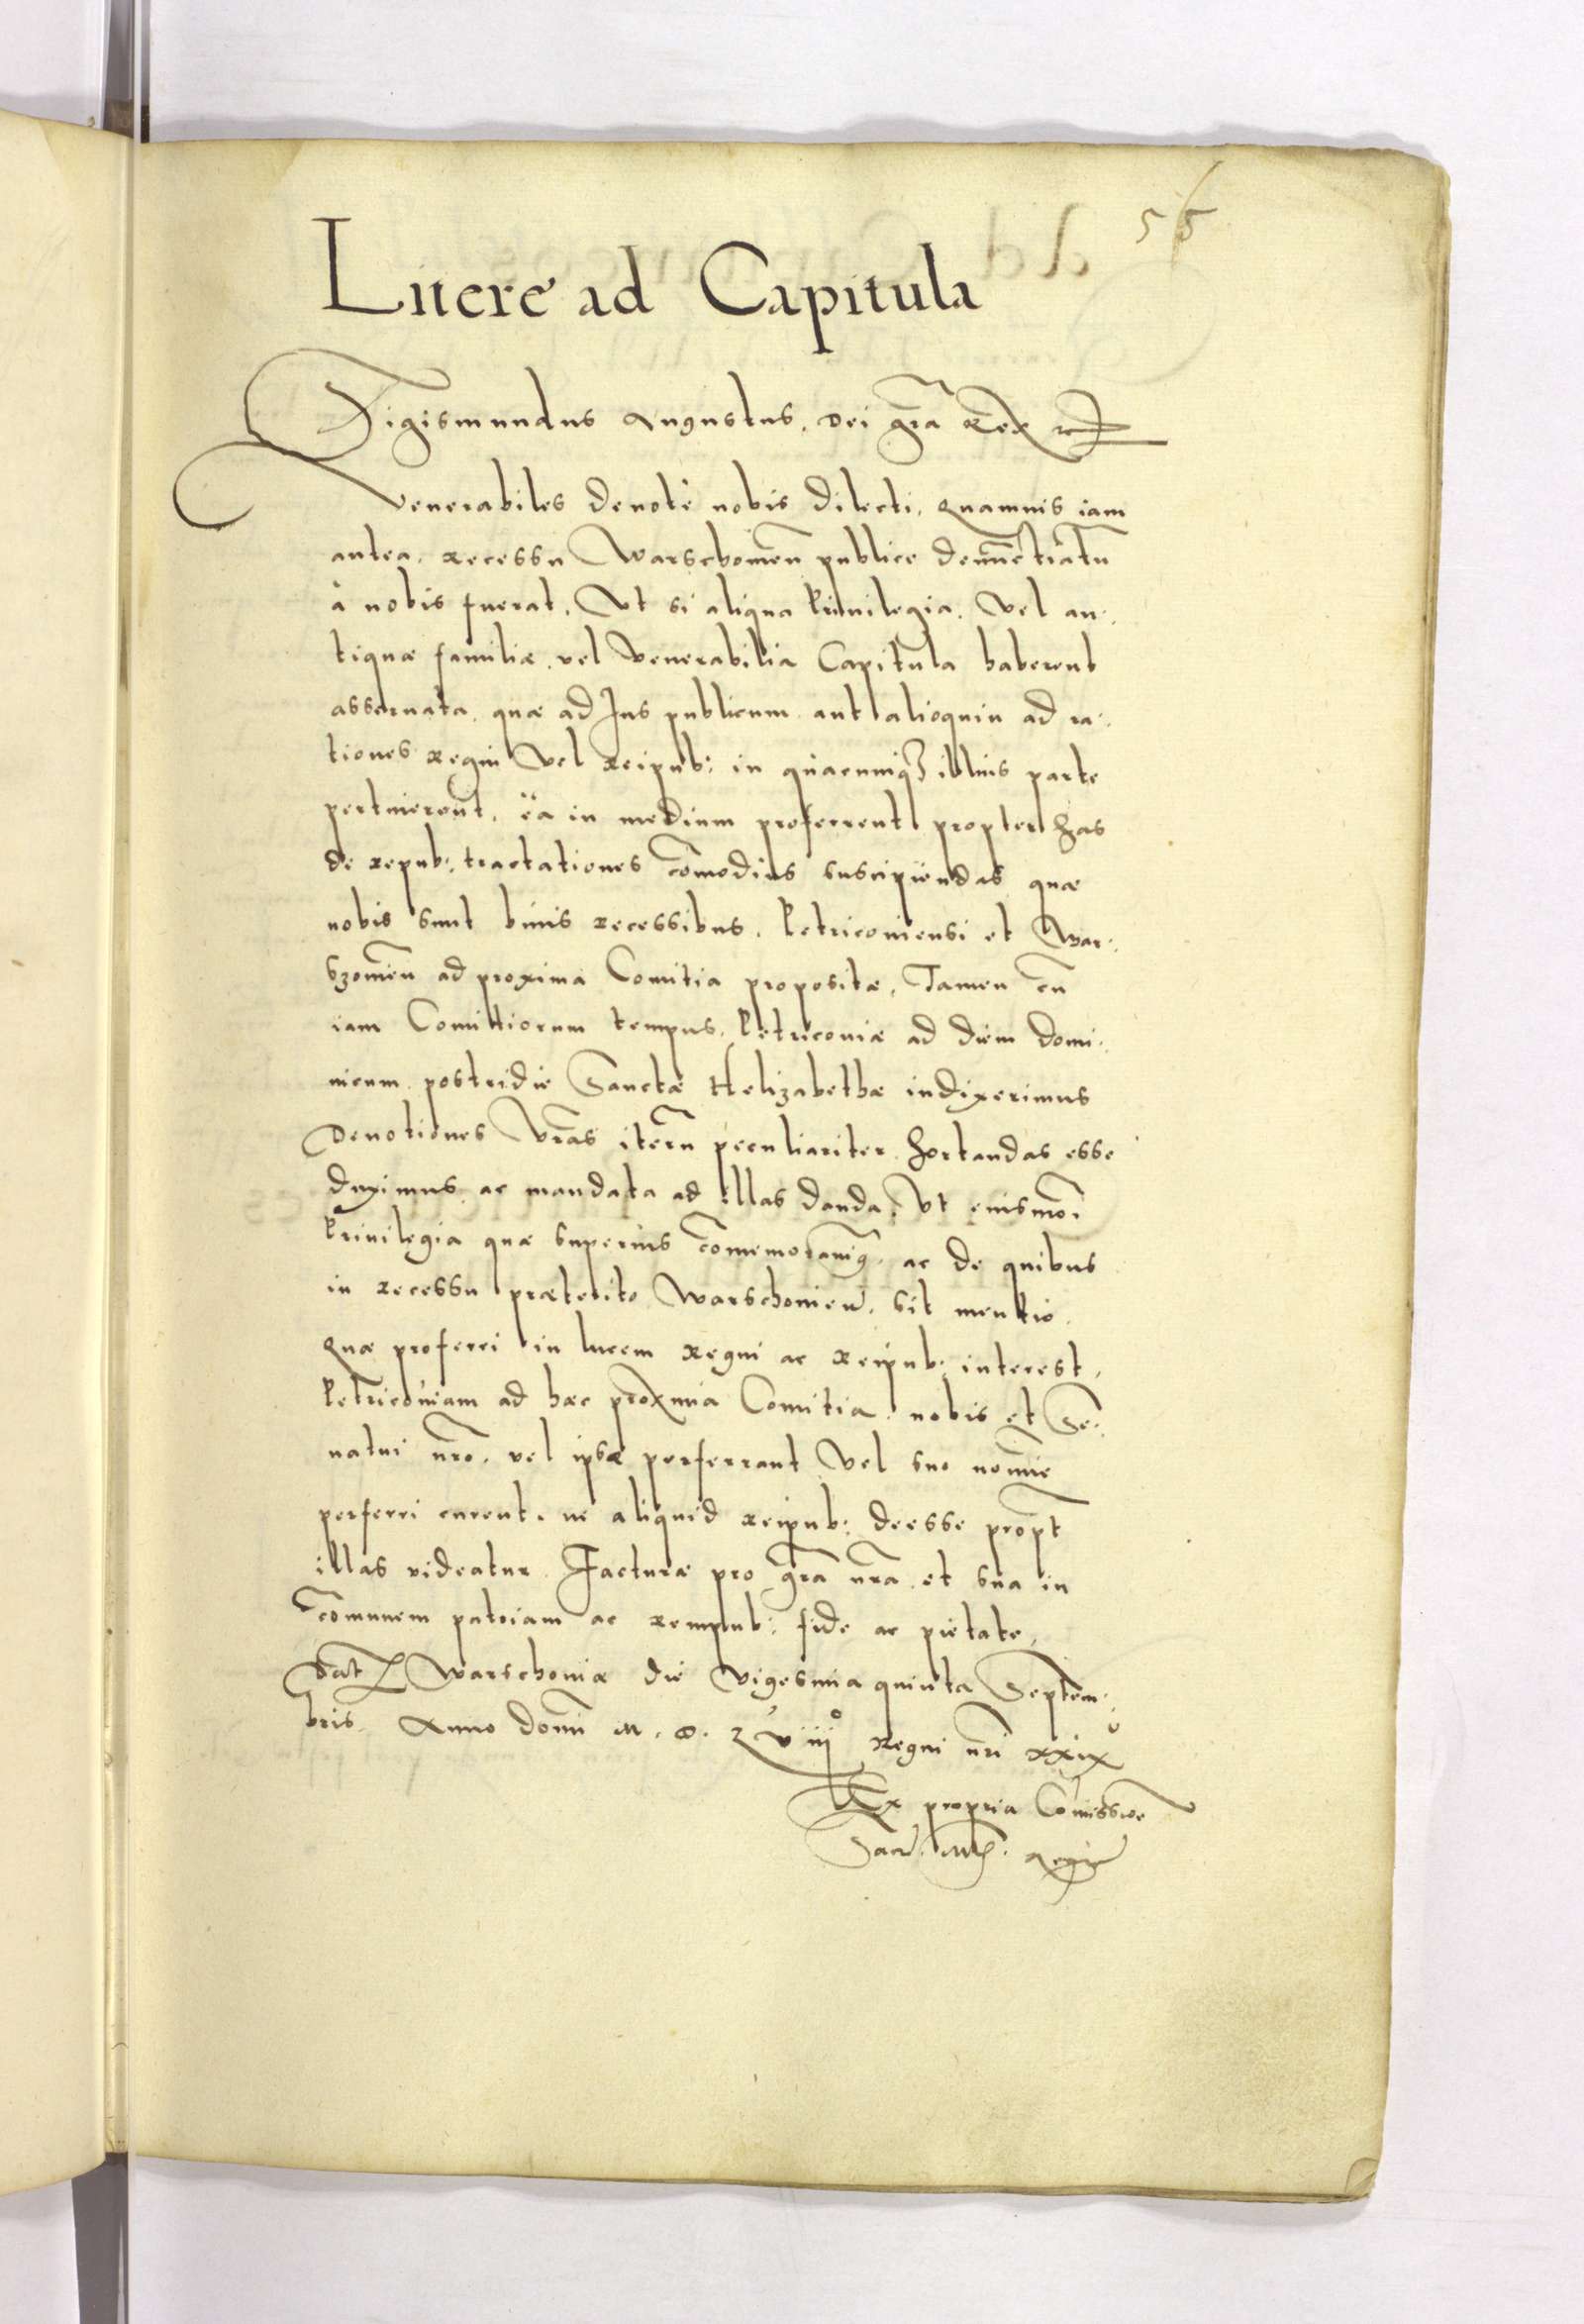 56
Litere ad Capitula
Sigismundus Augustus, Dei gr̃a Rex etc
Venerabiles devotè nobis dilecti, Quamvis iam
antea, recessu Warschovieñ publice denũctiatũ
à nobis fuerat, Ut si aliqua Privilegia, vel an:
tiquæ familiæ, vel Venerabilia Capitula haberent
asservata, quæ ad Jus publicum aut alioquin ad ra:
tiones Regni vel Reipub: in quacunq3 illius parte
pertinerent, ea in medium proferrent propter has
de repub: tractationes cõmodius suscipiendas quæ
nobis sunt binis recessibus, Petricoviensi et War:
szovieñ ad proxima Comitia propositæ, Tamen cũ
iam Comitiorum tempus, Petricoviæ ad diem domi:
nicum postridie Sanctæ Helizabethæ indixerimus
Devotiones Vr̃as iterũ peculiariter hortandas esse
duximus ac mandata ad illas danda, Ut eiusmõi
Privilegia quæ superius cõmemoravim9, ac de quibus
in recessu præterito Warschovieñ, sit mentio,
Quæ proferri in lucem Regni ac Reipub: interest,
Petricoviam ad hæc proxima Comitia, nobis et Se:
natui nr̃o, vel ipsæ perferrant vel suo nomĩe
perferri curent, ne aliquid reipub: deesse propt̃
illas videatur. Facturæ pro gr̃a nr̃a, et sua in
cõmunem patriam ac rempub: fide ac pietate,
Dat Warschoviæ die Vigesima quinta Septem:
bris, Anno Domĩ M. D. Lviij° Regni nr̃i xxix°
Ex propria Cõmissiõe
Sacr̃. Mtis. Regiæ